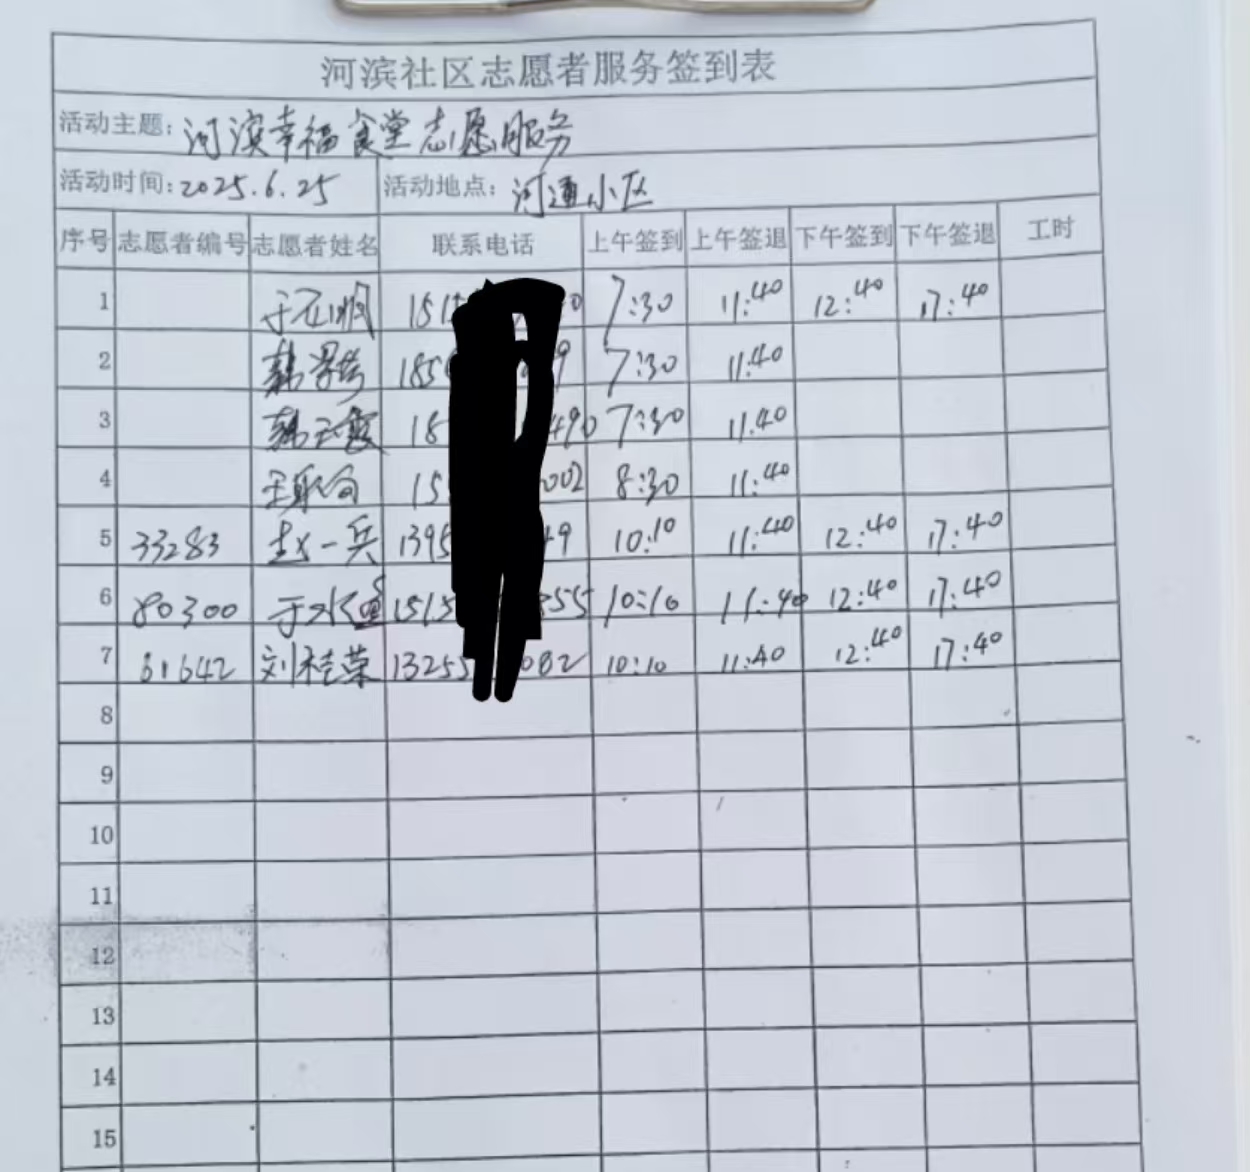 河滨社区志愿者服务签到表
活动主题：河滨幸福食堂志愿服务
活动时间：2025.6.25 活动地点：河通小区
序号 志愿者编号 志愿者姓名 联系电话 上午签到 上午签退 下午签到 下午签退 工时
1 151 0 7:30 11:40 12:40 17:40
2 185 9 7:30 11:40
3 韩云霞 18 490 7:30 11.40
4 15 002 8:30 11:40
5 33283 赵一兵 1395 49 10:10 11:40 12:40 17:40
6 80300 1515 355 10:10 11:40 12:40 17:40
7 61642 刘桂荣 13255 082 10:10 11:40 12:40 17:40
8
9
10
11
12
13
14
15